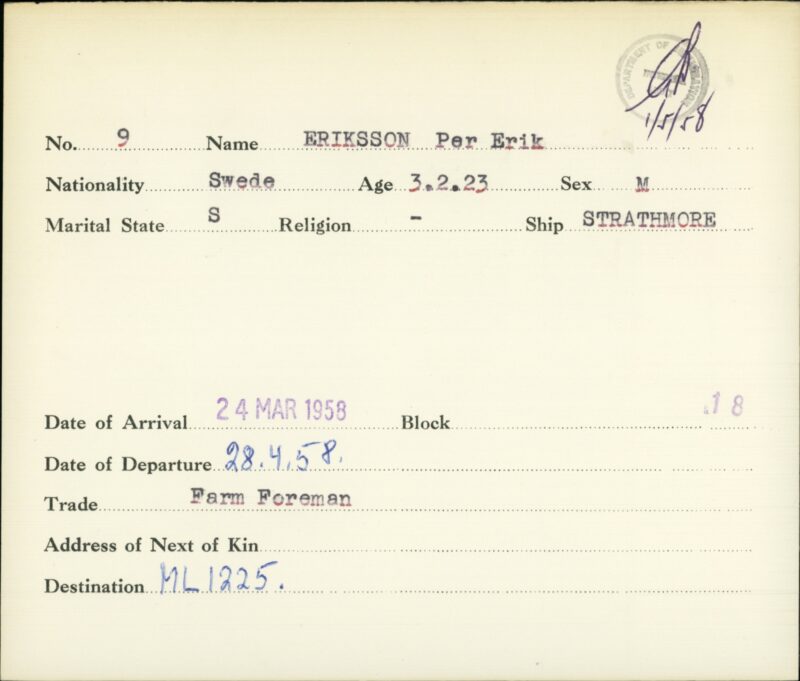 DEPARTMENT OF IMMIGRATION
1/5/58
No. 9 Name ERIKSSON Per Erik
Nationality Swede Age 3.2.23 Sex M
Marital State S Religion - Ship STRATHMORE
Date of Arrival 24 MAR 1958 Block 18
Date of Departure 28.4.58.
Trade Farm Foreman
Address of Next of Kin
Destination ML1225.